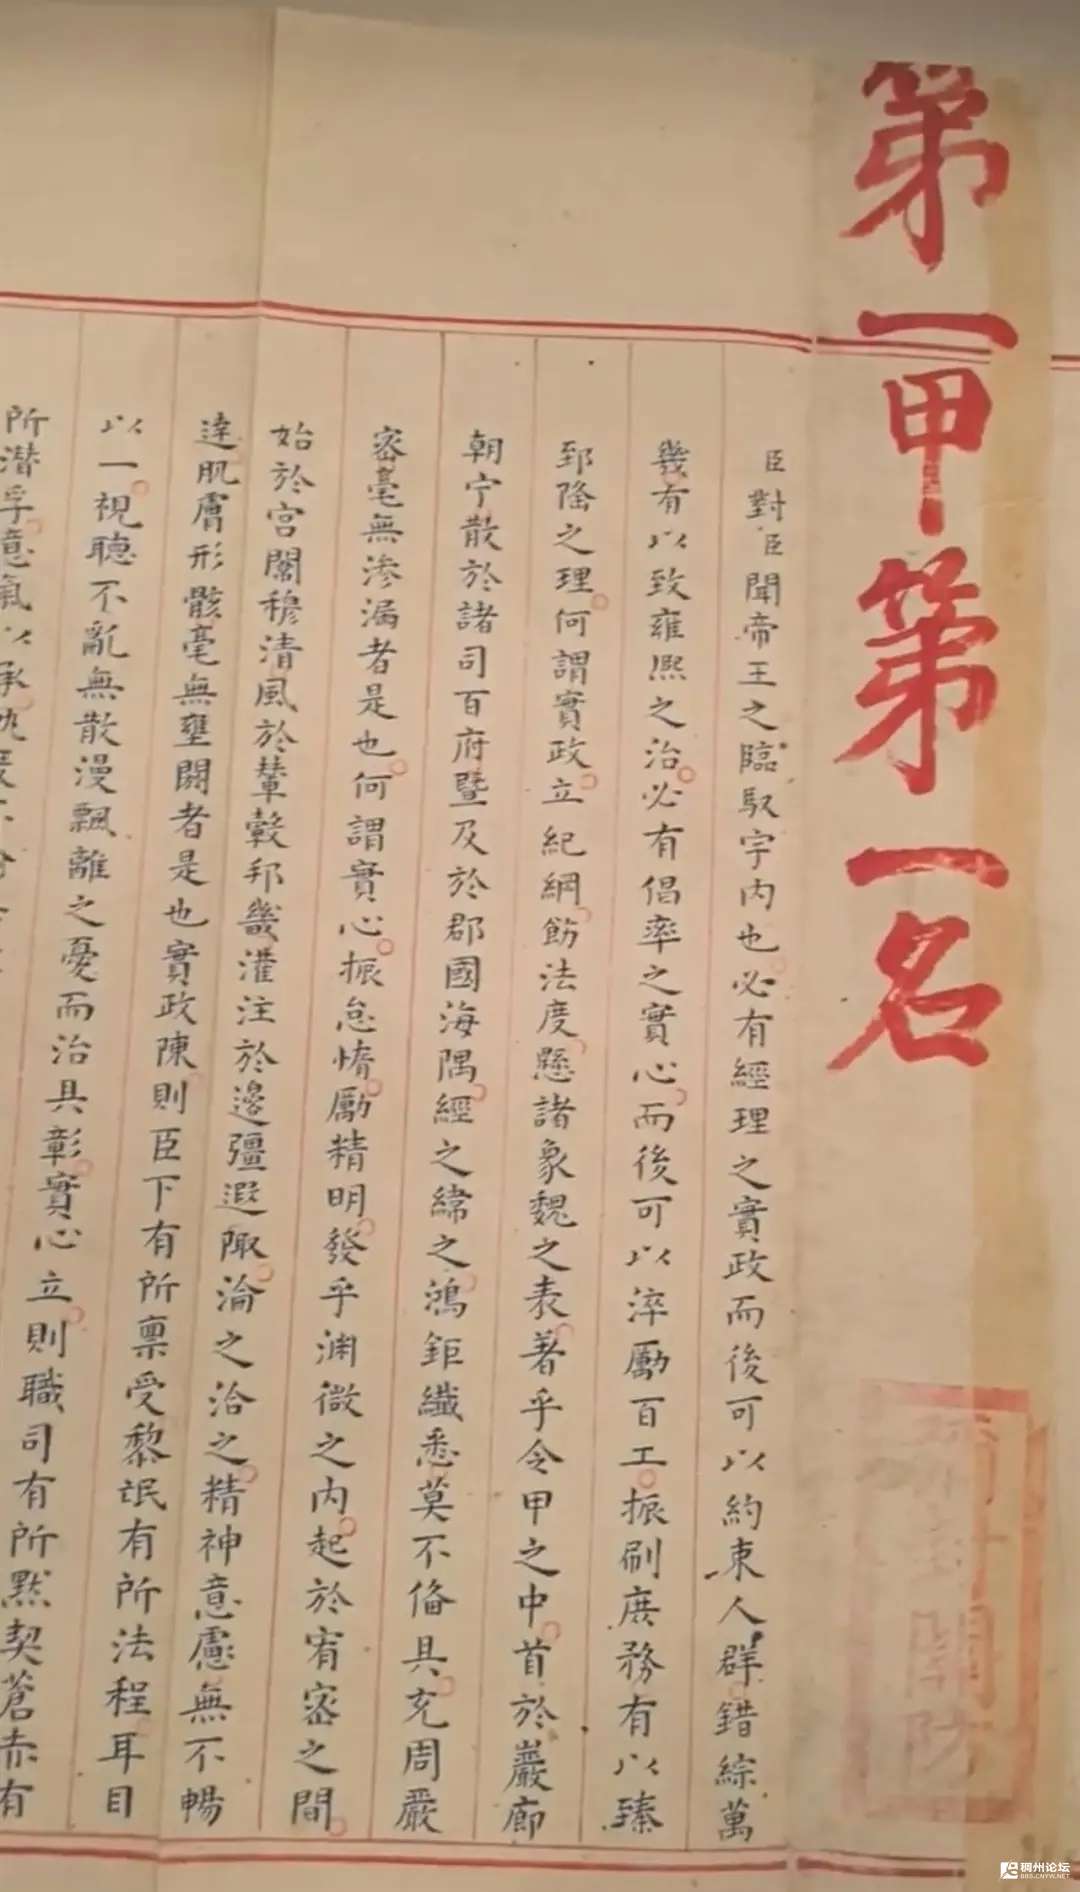 第一甲第一名
臣對臣聞帝王之臨馭宇内也必有經理之實政而後可以約束人群錯綜萬
幾有以致雍熙之治必有倡率之實心而後可以淬勵百工振刷庶務有以臻
郅隆之理何謂實政立紀綱飭法度懸諸象魏之表著乎令甲之中首於巖廊
朝宁散於諸司百府暨及於郡國海隅經之緯之鴻鉅纖悉莫不俻具充周嚴
宻毫無滲漏者是也何謂實心振怠惰勵精明發乎渊微之内起於宥宻之間
始於宮闈穆清風於輦轂邦畿灌注於邊彊遐陬淪之洽之精神意慮無不暢
達肌膚形骸毫無壅閼者是也實政陳則臣下有所禀受黎氓有所法程耳目
以一視聽不亂無散漫飄離之憂而治具彰實心立則職司有所默契蒼赤有
所潜孚意氣以承
關防
稠州论坛
BBS.CNYW.NET